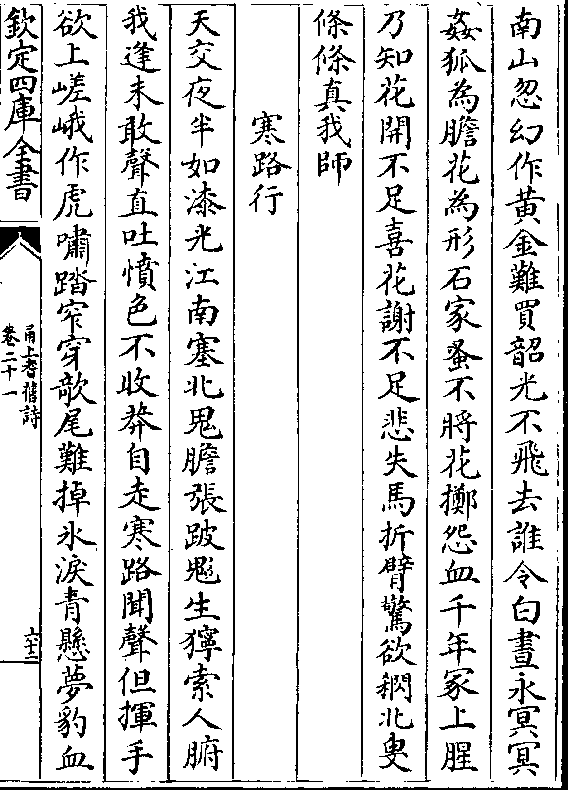 南山忽幻作黄金難買韶光不飛去誰令白晝永冥冥
姦狐為膽花為形石家蚤不將花擲怨血千年冢上腥
乃知花開不足喜花謝不足悲失馬折臂驚欲 北叟
條條真我師
寒路行
天交夜半如漆光江南塞北鬼膽張跛鬼生獰索人腑
我逢未敢聲直吐憤色不收莽自走寒路聞聲但揮手
欲上嵯峨作虎嘯踏窄穿歆尾難掉氷淚青懸夢豹血
欽定四庫全書
甬上耆舊詩
卷二十一
六十二